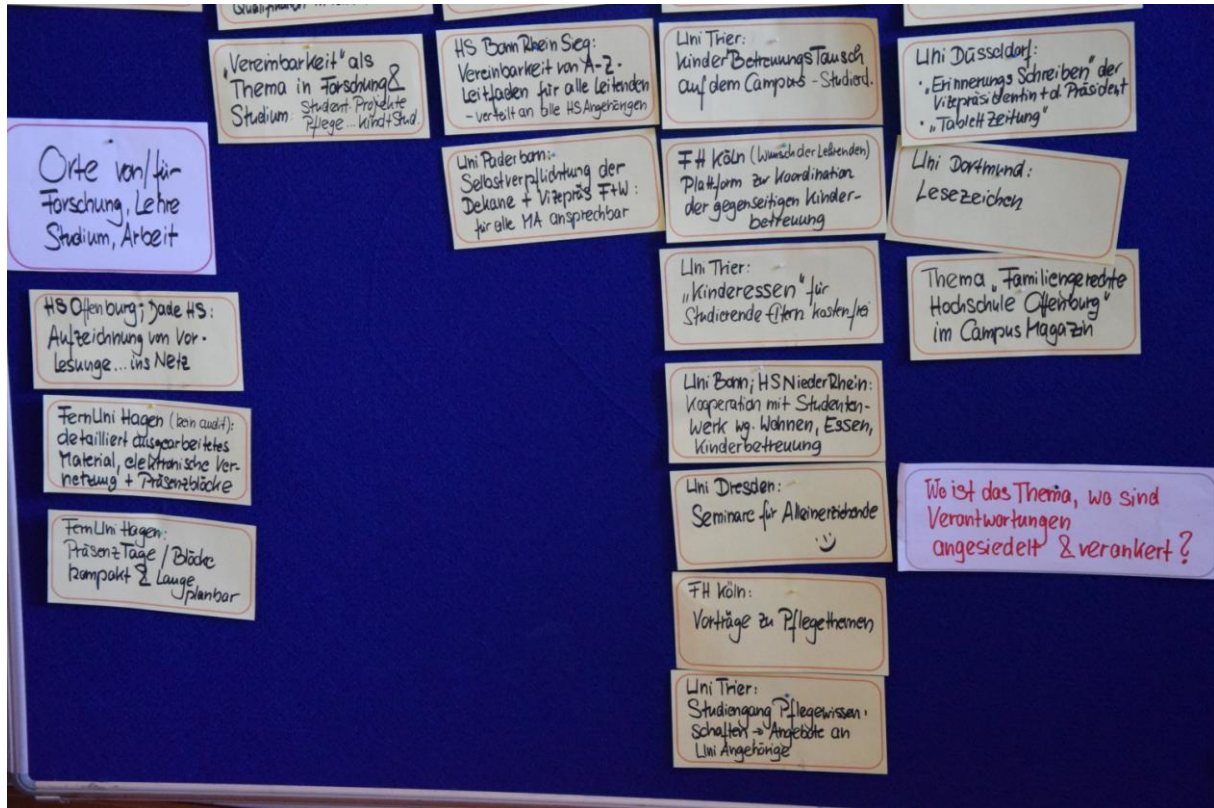 "Vereinbarkeit" als
Thema in Forschung &
Studium Student. Projekte
Pflege... Kind+Stud.
Orte von/für
Forschung, Lehre
Studium, Arbeit
HS Offenburg; Jade HS:
Aufzeichnung von Vor-
lesunge... ins Netz
FernUni Hagen (kein audit):
detailliert ausgearbeitetes
Material, elektronische Ver-
netzung + Präsenzblöcke
FernUni Hagen:
PräsenzTage / Blöcke
kompakt & Lange
planbar
HS Bonn Rhein Sieg:
Vereinbarkeit von A-Z-
Leitfaden für alle Leitenden
- verteilt an alle HS Angehörigen
Uni Paderborn:
Selbstverpflichtung der
Dekane + Vizepräs F+W:
für alle MA ansprechbar
Uni Trier:
KinderBetreuungsTausch
auf dem Campus - Studierd.
FH Köln (Wunsch der Lehrenden)
Plattform zur Koordination
der gegenseitigen Kinder-
betreuung
Uni Trier:
"Kinderessen" für
Studierende Eltern kostenfrei
Uni Bonn; HS NiederRhein:
Kooperation mit Studenten-
werk wg. Wohnen, Essen,
Kinderbetreuung
Uni Dresden:
Seminare für Alleinerziehende
FH Köln:
Vorträge zu Pflegethemen
Uni Trier:
Studiengang Pflegewissen-
schaften → Angebote an
Uni Angehörige
Uni Düsseldorf:
• "Erinnerungs Schreiben" der
Vizepräsidentin + d. Präsident
• "Tablett Zeitung"
Uni Dortmund:
Lesezeichen
Thema "Familiengerechte
Hochschule Offenburg"
im Campus Magazin
Wo ist das Thema, wo sind
Verantwortungen
angesiedelt & verankert?